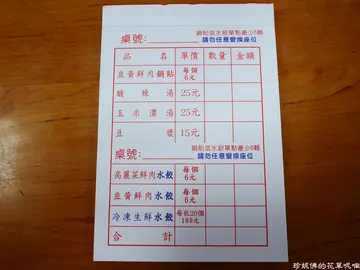 鍋貼或水餃單點最少5顆
桌號:
請勿任意變換座位
品名 單價 數量 金額
韭黃鮮肉鍋貼 每個6元
酸辣湯 25元
玉米濃湯 25元
豆漿 15元
鍋貼或水餃單點最少5顆
桌號:
請勿任意變換座位
高麗菜鮮肉水餃 每個6元
韭黃鮮肉水餃 每個6元
冷凍生鮮水餃 每包20個
合計
珍妮佛的花草呢喃